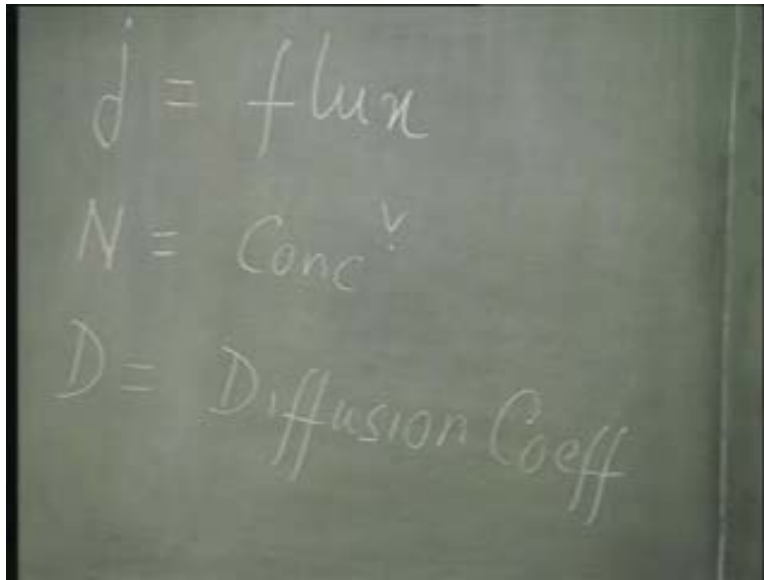 j = flux
N = Conc
D = Diffusion Coeff